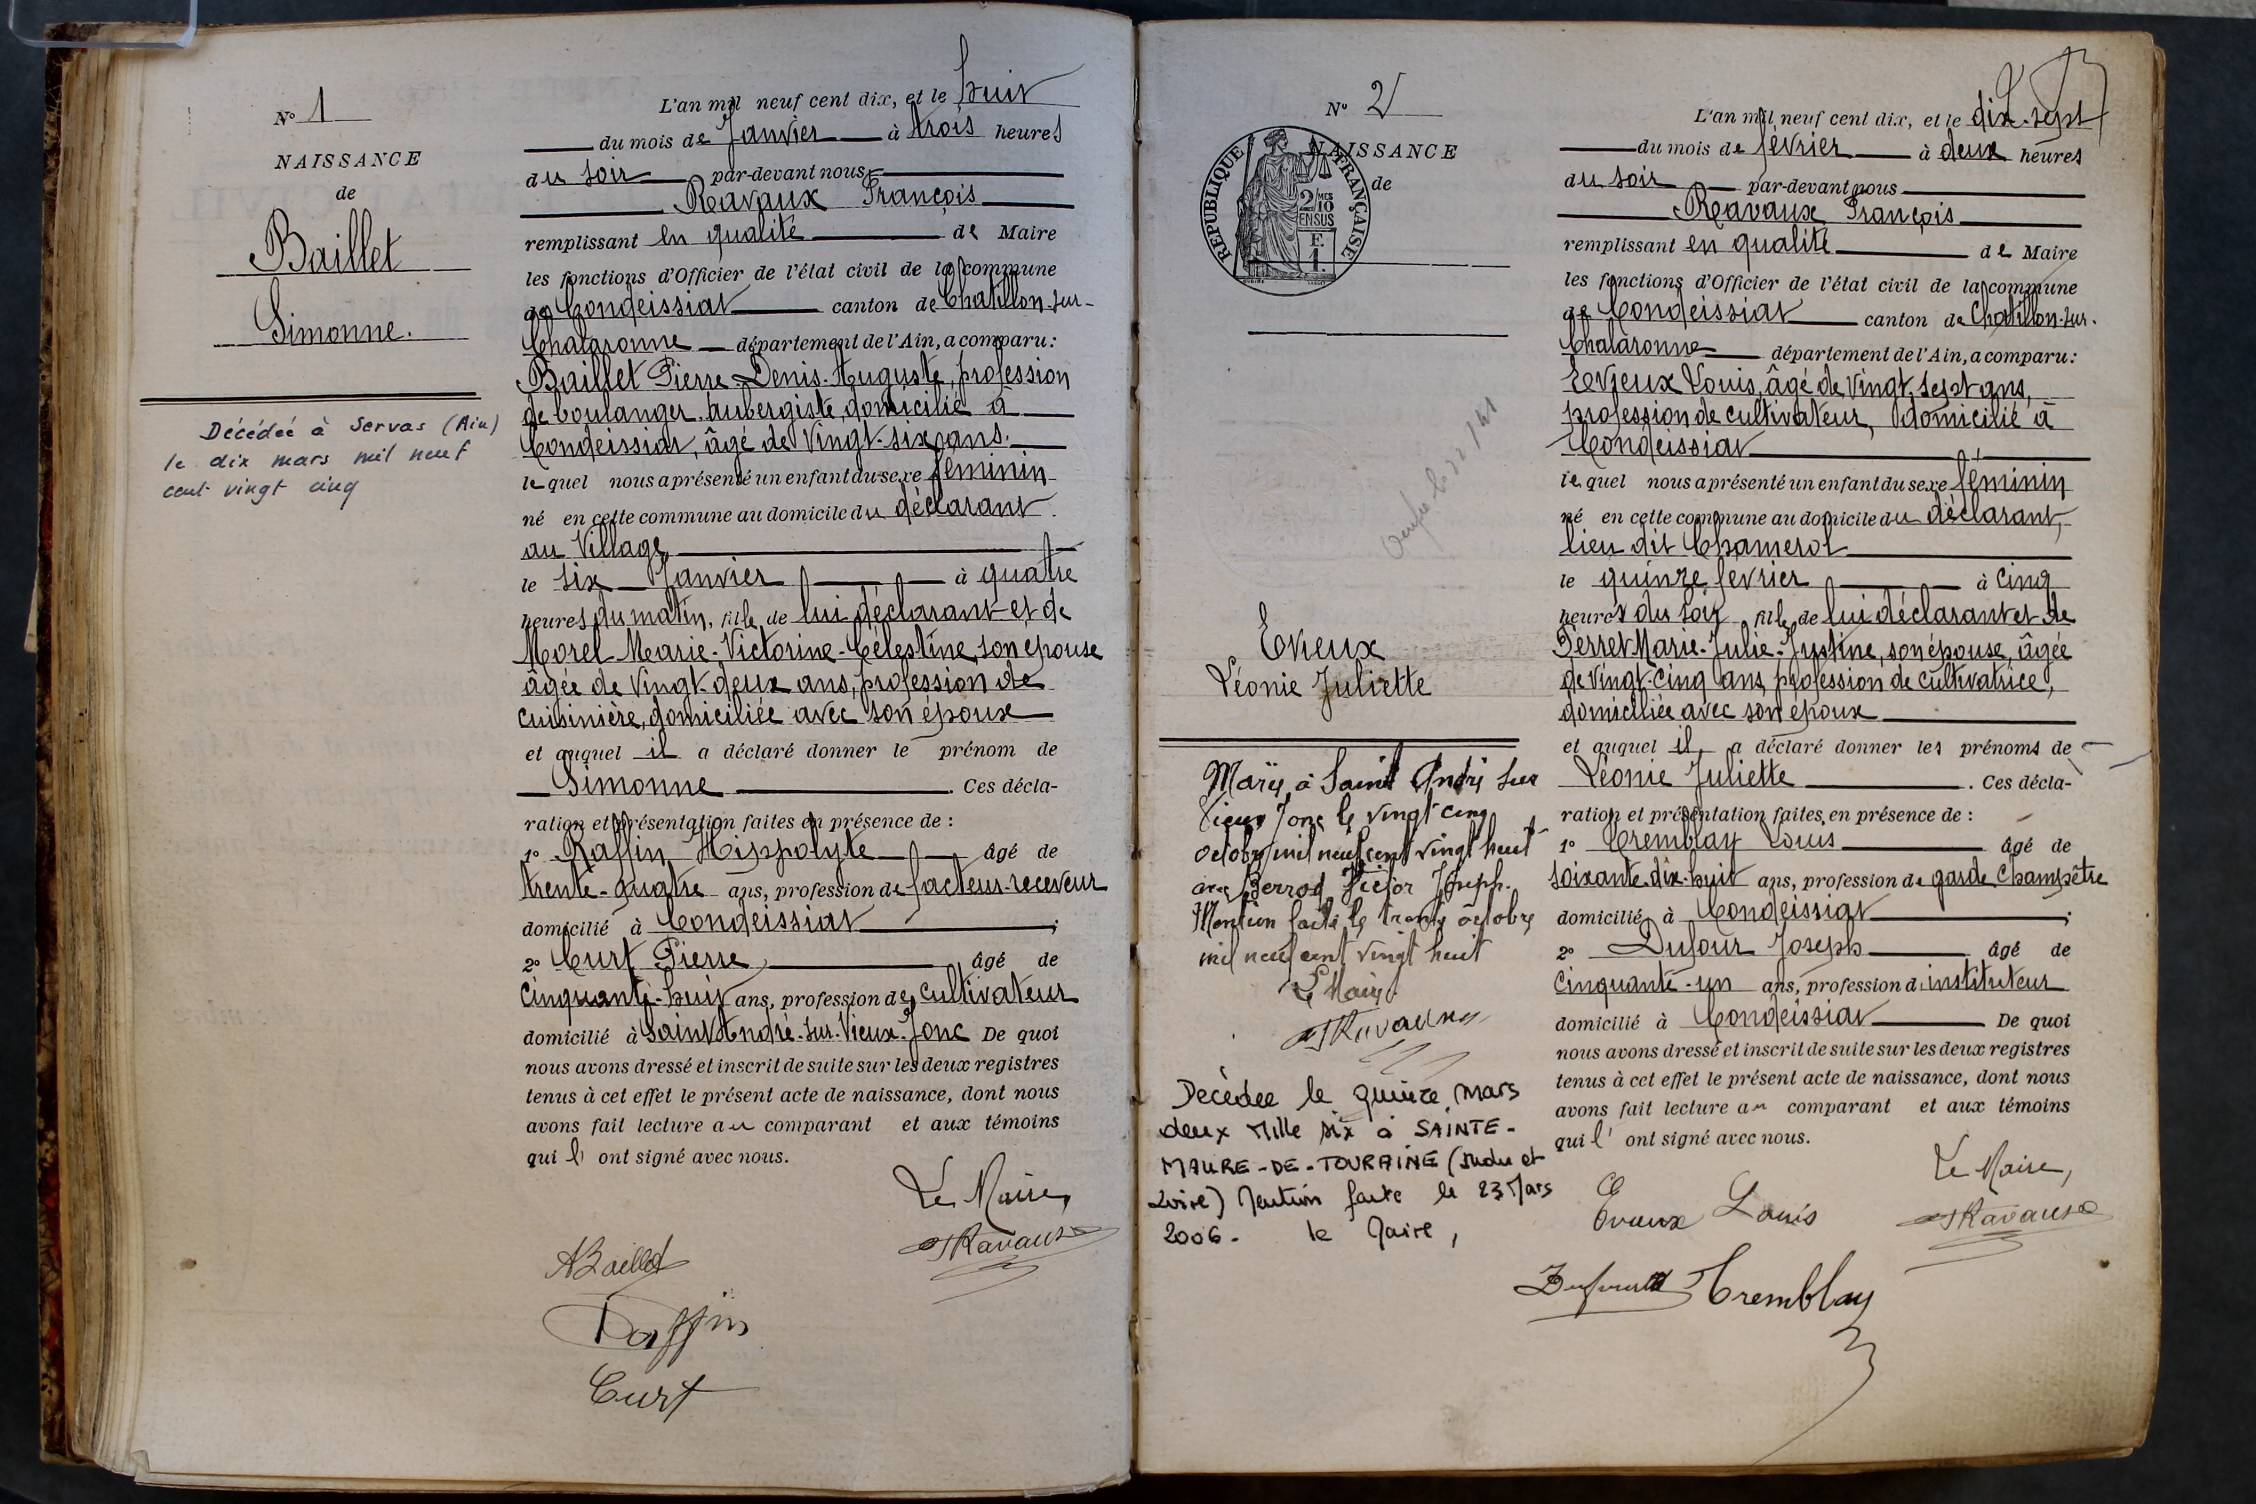 N° 1
NAISSANCE
de
Baillet
Simonne.
Décédée à Servas (Ain)
le dix mars mil neuf
cent vingt cinq
L'an mil neuf cent dix, et le huit
du mois de Janvier à trois heures
du soir par-devant nous,
Ravaux François
remplissant en qualité de Maire
les fonctions d'Officier de l'état civil de la commune
de Condeissiat canton de Chatillon-sur-
Chalaronne département de l'Ain, a comparu:
Baillet Pierre-Denis-Auguste, profession
de boulanger-aubergiste, domicilié à
Condeissiat, âgé de Vingt-six ans.
lequel nous a présenté un enfant du sexe féminin
né en cette commune au domicile du déclarant.
au Village
le six Janvier à quatre
heures du matin, fille de lui déclarant et de
Morel Marie-Victorine-Célestine, son épouse
âgée de Vingt-deux ans, profession de
cuisinière, domiciliée avec son époux
et auquel il a déclaré donner le prénom de
Simonne. Ces décla-
ration et présentation faites en présence de :
1° Raffin Hippolyte âgé de
trente-quatre ans, profession de facteur-receveur
domicilié à Condeissiat;
2° Curt Pierre, âgé de
cinquante-huit ans, profession de cultivateur
domicilié à Saint André-sur-Vieux-Jonc De quoi
nous avons dressé et inscrit de suite sur les deux registres
tenus à cet effet le présent acte de naissance, dont nous
avons fait lecture au comparant et aux témoins
qui l' ont signé avec nous.
Le Maire,
Ravaux
ABaillet
Raffin
Curt
N° 2
NAISSANCE
de
RÉPUBLIQUE FRANÇAISE
2/10 MES
EN SUS
F.
1.
Evieux
Léonie Juliette
Mariée à Saint André sur
Vieux Jonc le vingt cinq
octobre mil neuf cent vingt huit
avec Berrod Victor Joseph.
Mention faite le trente octobre
mil neuf cent vingt huit
Le Maire
Ravaux
Décédée le quinze mars
deux mille six à SAINTE-
MAURE-DE-TOURAINE (Indre et
Loire) Mention faite le 23 Mars
2006. le Maire,
L'an mil neuf cent dix, et le dix-sept
du mois de février à deux heures
du soir par-devant nous
Ravaux François
remplissant en qualité de Maire
les fonctions d'Officier de l'état civil de la commune
de Condeissiat canton de Chatillon-sur-
Chalaronne département de l'Ain, a comparu:
Evieux Louis, âgé de Vingt-sept ans,
profession de cultivateur, domicilié à
Condeissiat
lequel nous a présenté un enfant du sexe féminin
né en cette commune au domicile du déclarant,
lieu dit Chamerol
le quinze février à cinq
heures du soir fille de lui déclarant et de
Perret Marie-Julie-Justine, son épouse, âgée
de vingt-cinq ans, profession de cultivatrice,
domiciliée avec son époux
et auquel il a déclaré donner les prénoms de
Léonie Juliette. Ces décla-
ration et présentation faites en présence de :
1° Tremblay Louis âgé de
soixante-dix-huit ans, profession de garde champêtre
domicilié à Condeissiat;
2° Dufour Joseph âgé de
cinquante-un ans, profession d'instituteur
domicilié à Condeissiat De quoi
nous avons dressé et inscrit de suite sur les deux registres
tenus à cet effet le présent acte de naissance, dont nous
avons fait lecture au comparant et aux témoins
qui l' ont signé avec nous.
Le Maire,
Ravaux
Evieux Louis
Dufour Tremblay